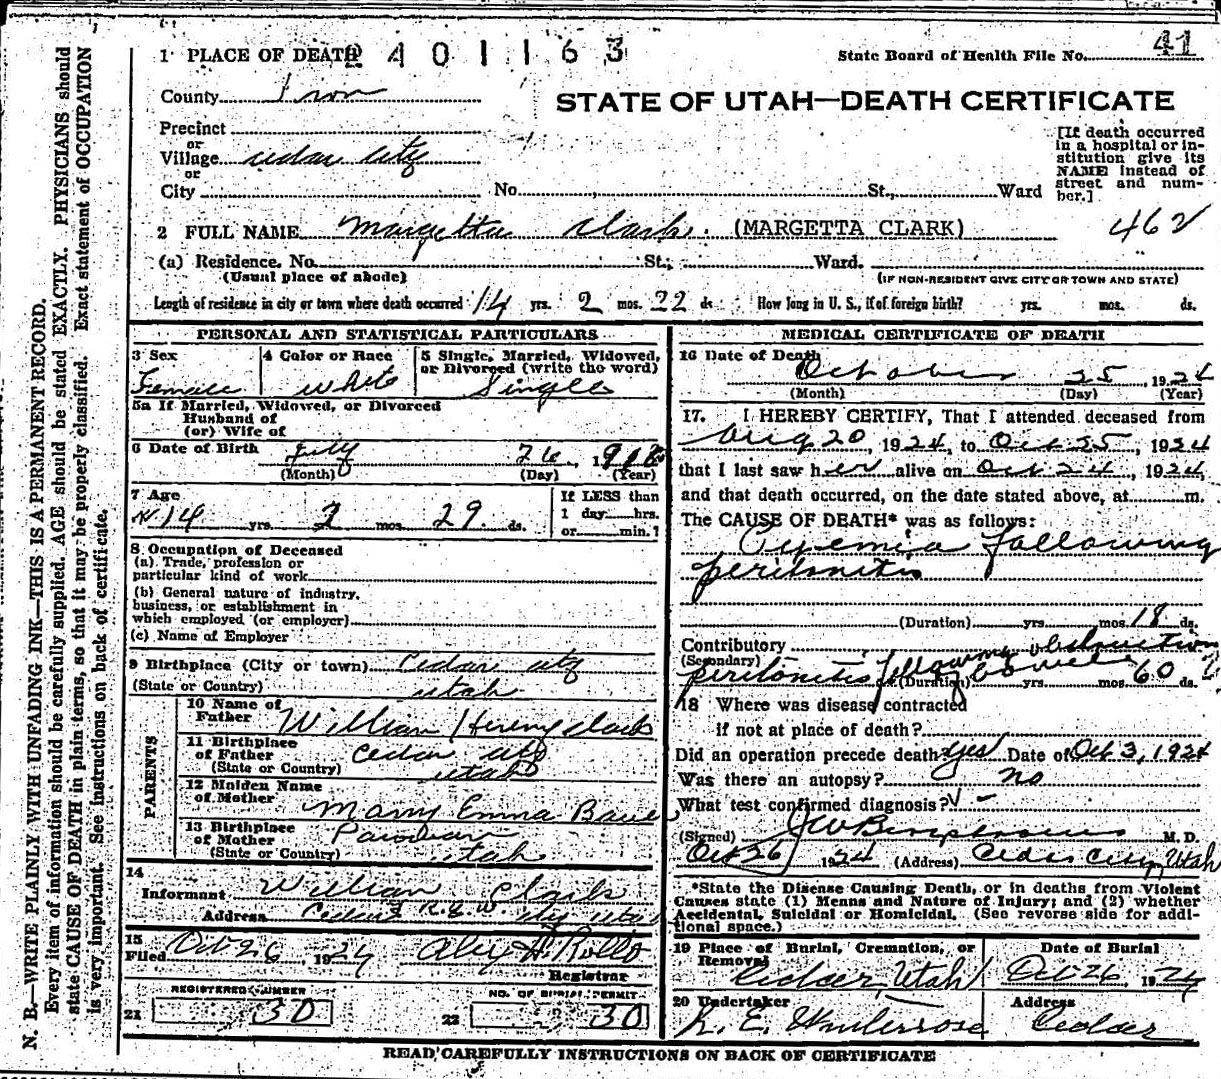 N. B.—WRITE PLAINLY WITH UNFADING INK—THIS IS A PERMANENT RECORD.
Every item of information should be carefully supplied. AGE should be stated EXACTLY. PHYSICIANS should
state CAUSE OF DEATH in plain terms, so that it may be properly classified. Exact statement of OCCUPATION
is very important. See instructions on back of certificate.
1 PLACE OF DEATH 2401163
State Board of Health File No. 41
County Iron
STATE OF UTAH—DEATH CERTIFICATE
Precinct
or
Village Cedar City
or
City No. St., Ward
[If death occurred
in a hospital or in-
stitution give its
NAME instead of
street and num-
ber.]
2 FULL NAME Margetta Clark. (MARGETTA CLARK) 462
(a) Residence. No. St.; Ward.
(Usual place of abode) (IF NON-RESIDENT GIVE CITY OR TOWN AND STATE)
Length of residence in city or town where death occurred 14 yrs. 2 mos. 22 ds. How long in U. S., if of foreign birth? yrs. mos. ds.
PERSONAL AND STATISTICAL PARTICULARS
3 Sex
Female
4 Color or Race
White
5 Single, Married, Widowed,
or Divorced (write the word)
Single
5a If Married, Widowed, or Divorced
Husband of
(or) Wife of
6 Date of Birth July 26, 19
(Month) (Day) (Year)
7 Age
14 yrs. 2 mos. 29 ds.
If LESS than
1 day hrs.
or min.?
8 Occupation of Deceased
(a) Trade, profession or
particular kind of work
(b) General nature of industry,
business, or establishment in
which employed (or employer)
(c) Name of Employer
9 Birthplace (City or town) Cedar City
(State or Country) Utah
PARENTS
10 Name of
Father William Henry Clark
11 Birthplace
of Father Cedar City
(State or Country) Utah
12 Maiden Name
of Mother Mary Emma
13 Birthplace
of Mother Parowan
(State or Country) Utah
14
Informant William Clark
Address Cedar City Utah
15
Filed Oct 26, 1924 Alex H. Rollo
Registrar
REGISTERED NUMBER
21 30
NO. OF BURIAL PERMIT
22 30
MEDICAL CERTIFICATE OF DEATH
16 Date of Death
October 25, 1924
(Month) (Day) (Year)
17. I HEREBY CERTIFY, That I attended deceased from
Aug 20, 1924, to Oct 25, 1924
that I last saw her alive on Oct 24, 1924,
and that death occurred, on the date stated above, at m.
The CAUSE OF DEATH* was as follows:
Pyemia following
peritonitis
(Duration) yrs. mos. 18 ds.
Contributory obstruction
(Secondary)
peritonitis following bowel
(Duration) yrs. mos. 60 ds.
18 Where was disease contracted
If not at place of death?
Did an operation precede death yes Date of Oct 3, 1924
Was there an autopsy? no
What test confirmed diagnosis?
(Signed) M. D.
Oct 26 1924 (Address) Cedar City, Utah
*State the Disease Causing Death, or in deaths from Violent
Causes state (1) Means and Nature of Injury; and (2) whether
Accidental, Suicidal or Homicidal. (See reverse side for addi-
tional space.)
19 Place of Burial, Cremation, or
Removal
Cedar, Utah
Date of Burial
Oct 26 1924
20 Undertaker
L. E.
Address
Cedar
READ CAREFULLY INSTRUCTIONS ON BACK OF CERTIFICATE